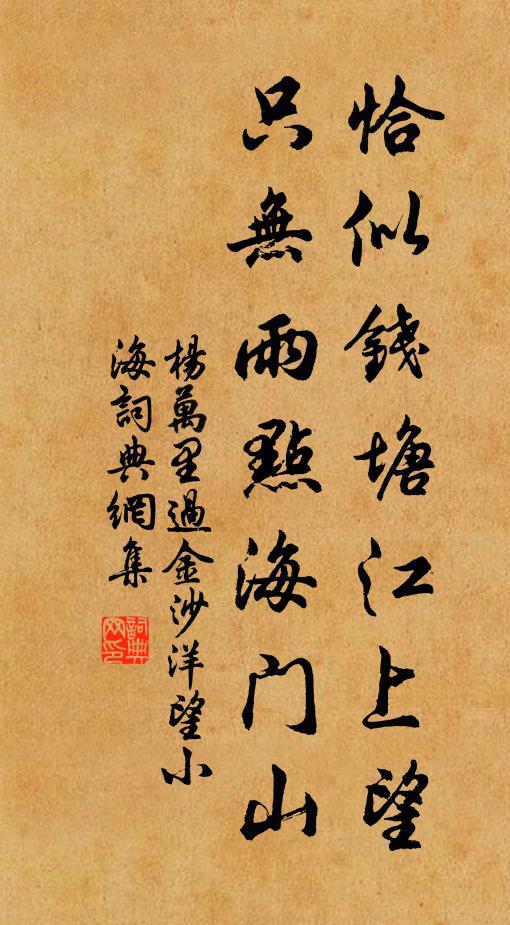 恰似錢塘江上望
只無雨點海門山
楊萬里過金沙洋望小
海詞典網集
詞典網印